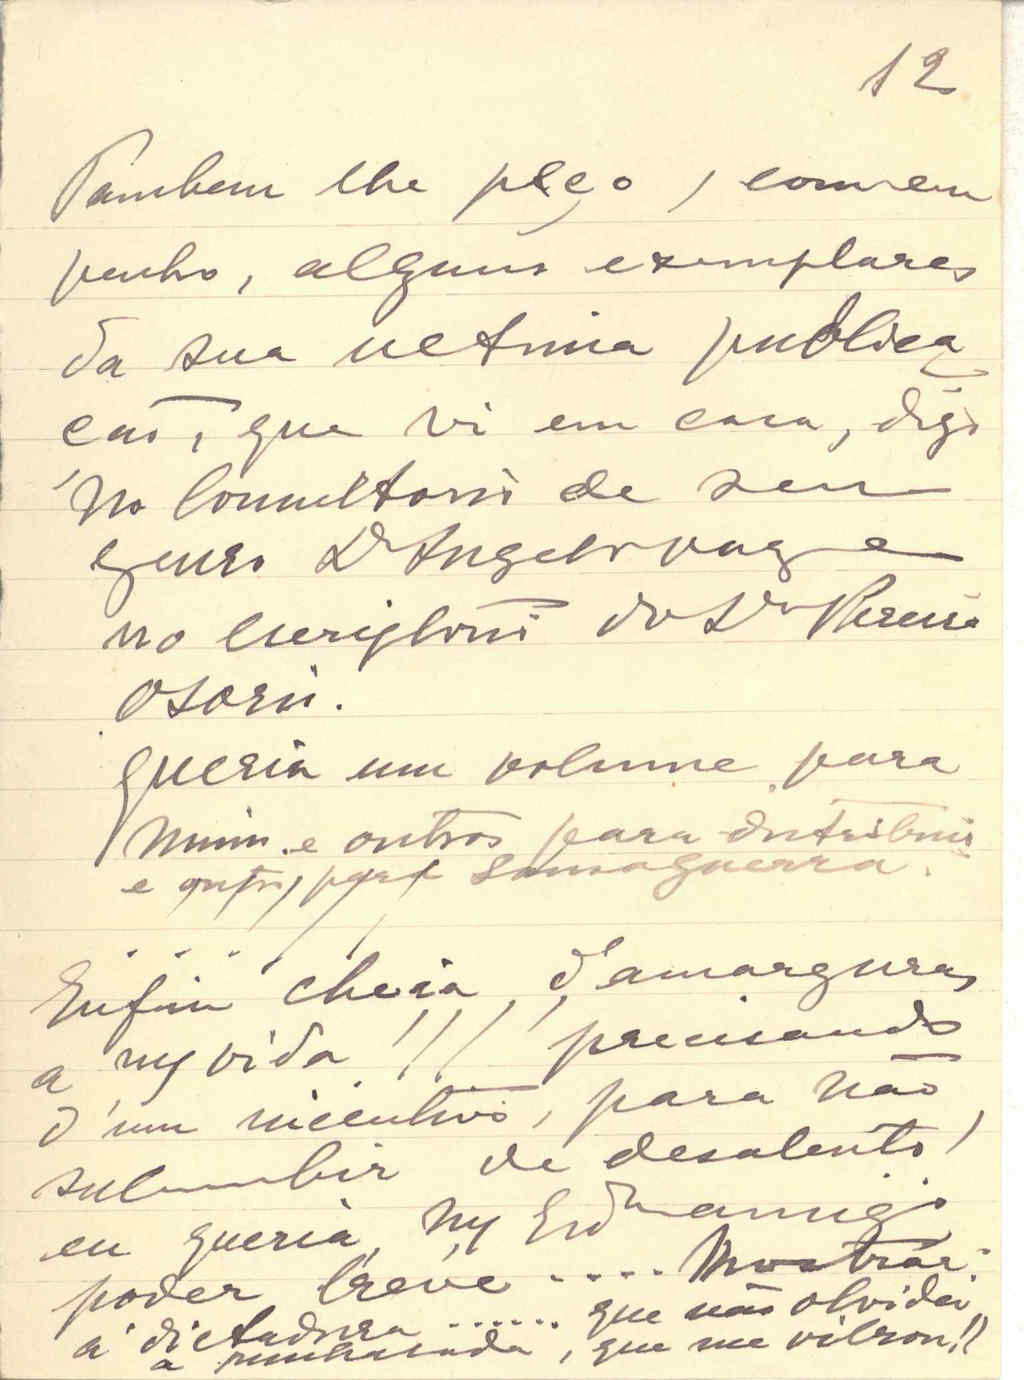 12
Tambem lhe peço, com em
penho, alguns exemplares
da sua ultima publica
cão, que vi em casa, digo
no Consultorio de seu
genro Dr Angelo Vaz e
no escriptorio do Dr Pereira
Osorio.
Queria um volume para
mim e outros para distribuir
e outro para Samaguerra.
Enfim cheia d'amarguras
a mª vida!!! precisando
d'um incentivo, para não
sucumbir de desalento,
eu queria, amigo
poder breve .... Mostrar
á dictadura ...... que não olvidei
a punhalada, que me vibrou!!